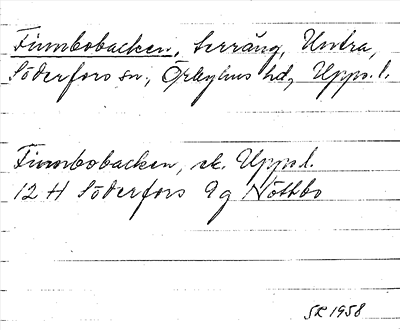 Finnbobacken, terräng, Untra,
Söderfors sn, Örbyhus hd, Upps. l.
Finnbobacken, ek. Upps l.
12 H Söderfors 9g Nöttbo
SL 1958